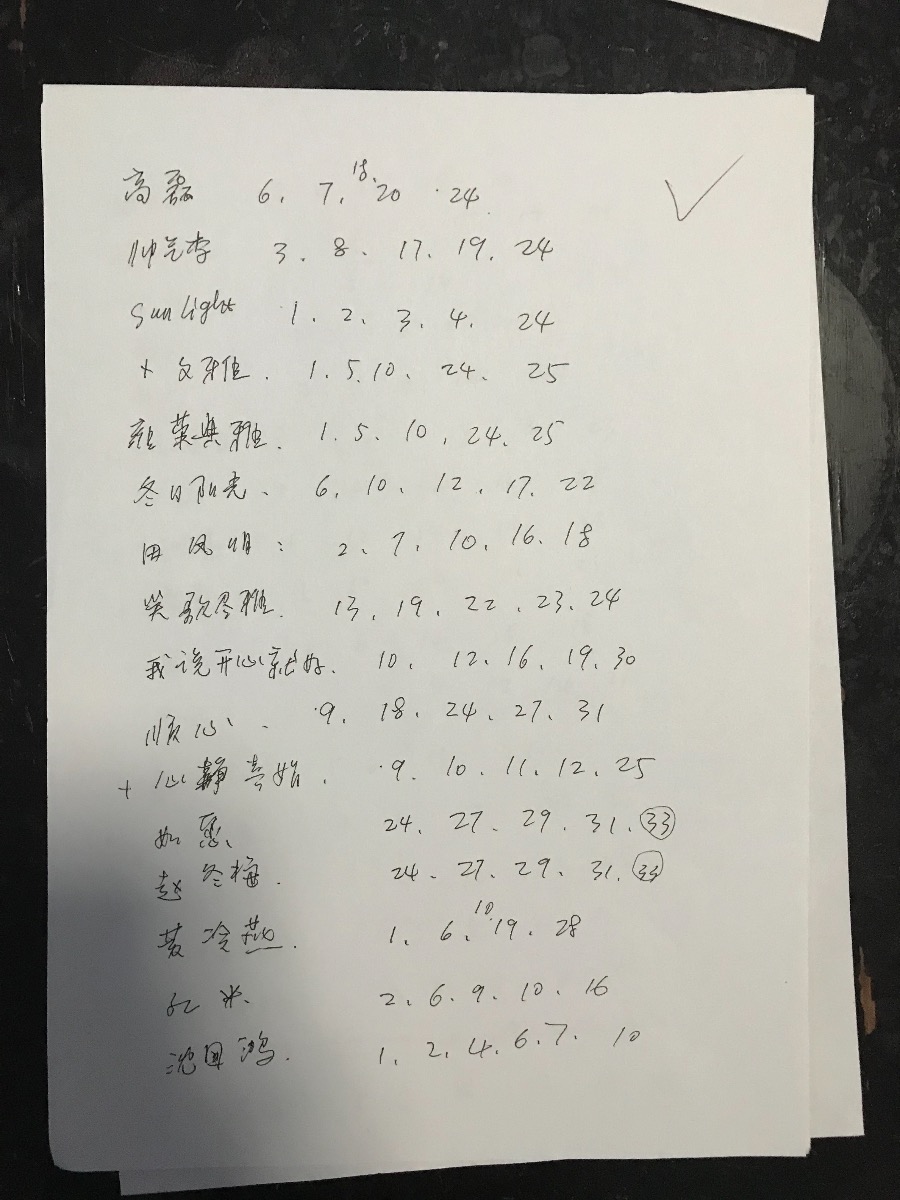 高磊 6. 7. 18. 20 . 24
帅气李 3. 8. 17. 19. 24
Sun light 1. 2. 3. 4. 24
+ 文雅佳. 1. 5. 10. 24. 25
雅. 1. 5. 10. 24. 25
冬日阳光. 6. 10. 12. 17. 22
田凤娟: 2. 7. 10. 16. 18
笑歌 雅. 13. 19. 22. 23. 24
我说开心就好. 10. 12. 16. 19. 30
顺心. 9. 18. 24. 27. 31
+ 心静 始. 9. 10. 11. 12. 25
如惠. 24. 27. 29. 31. 33
赵冬梅. 24. 27. 29. 31. 33
黄冷燕. 1. 6. 10. 19. 28
红米. 2. 6. 9. 10. 16
沈国鸿. 1. 2. 4. 6. 7. 10